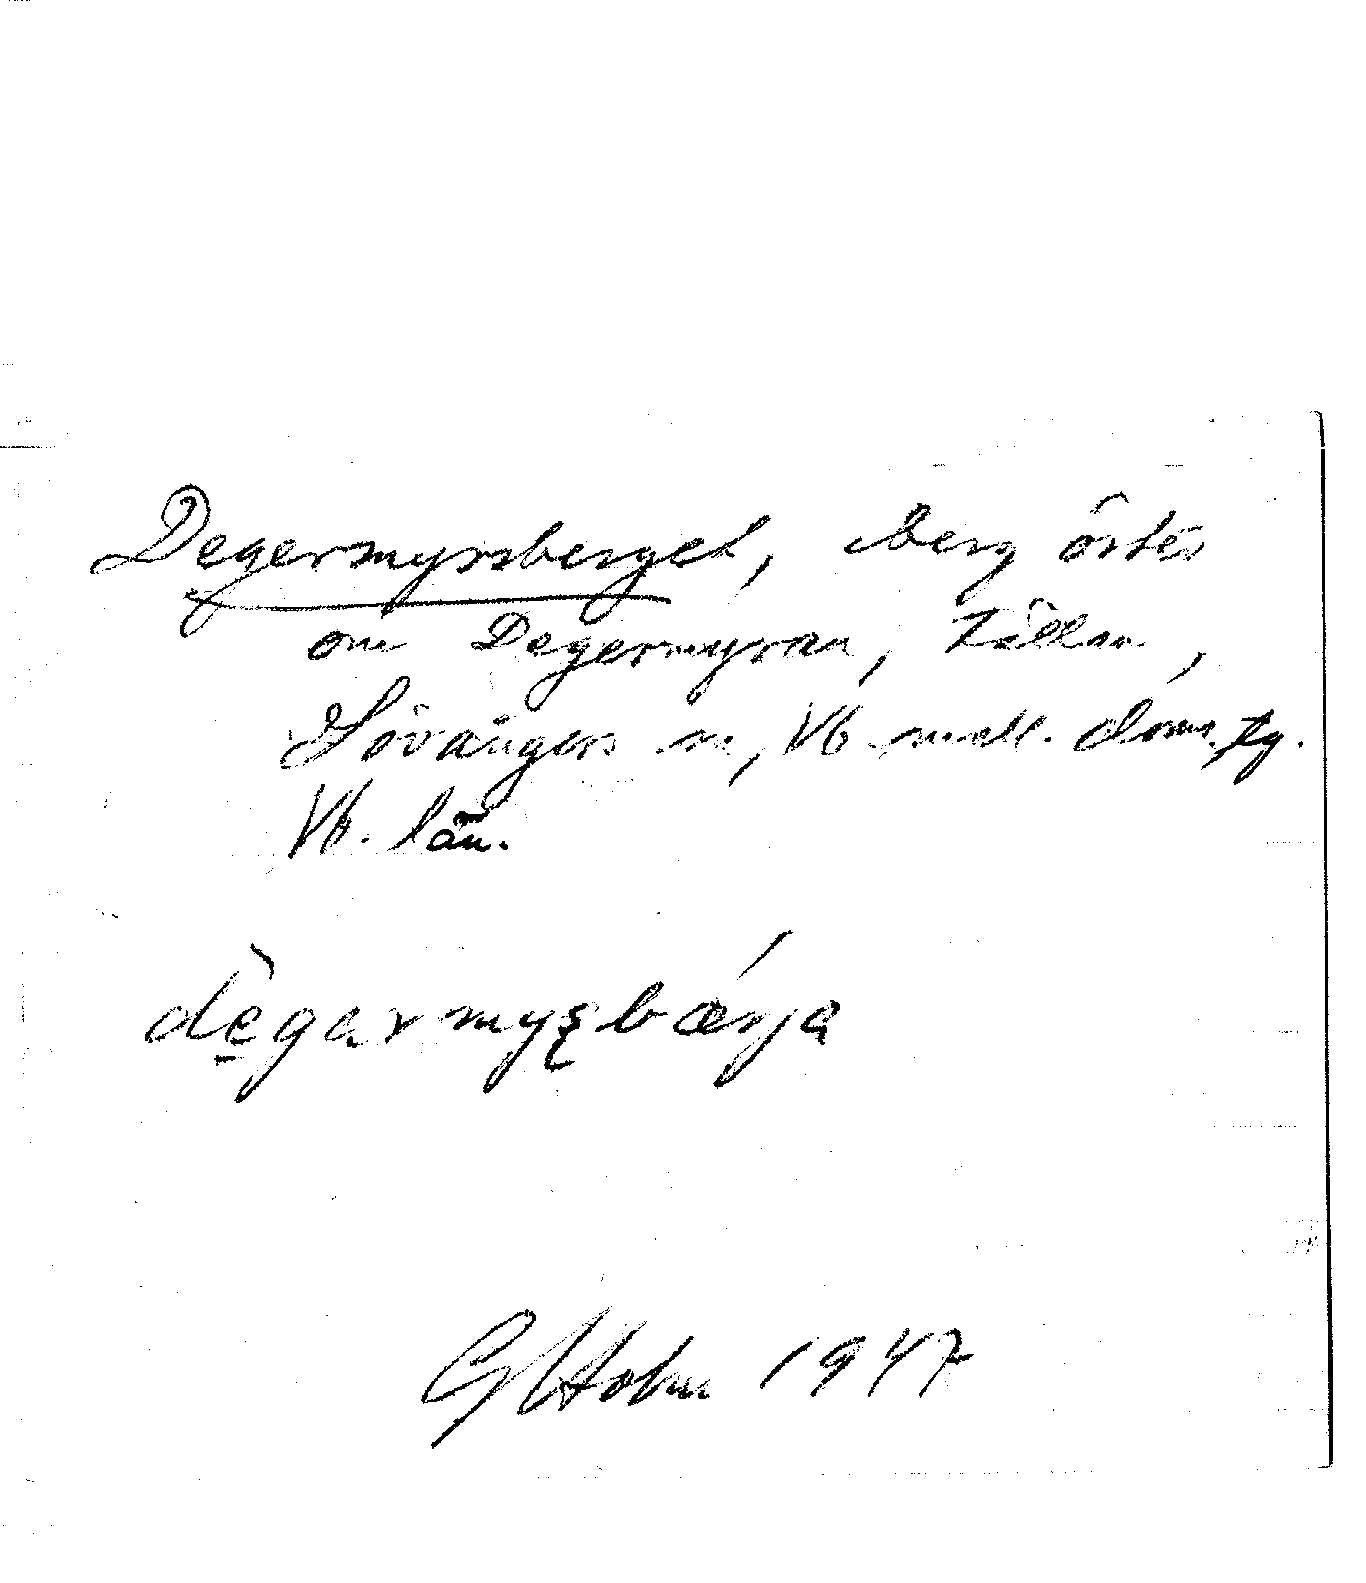 Degermyrsberget, berg öster
om Degermyran, Tällan,
Lövånger sn, Vb mell. doms. tg.
Vb. län.
dègarmyʂbǽrja
G Holm 1947